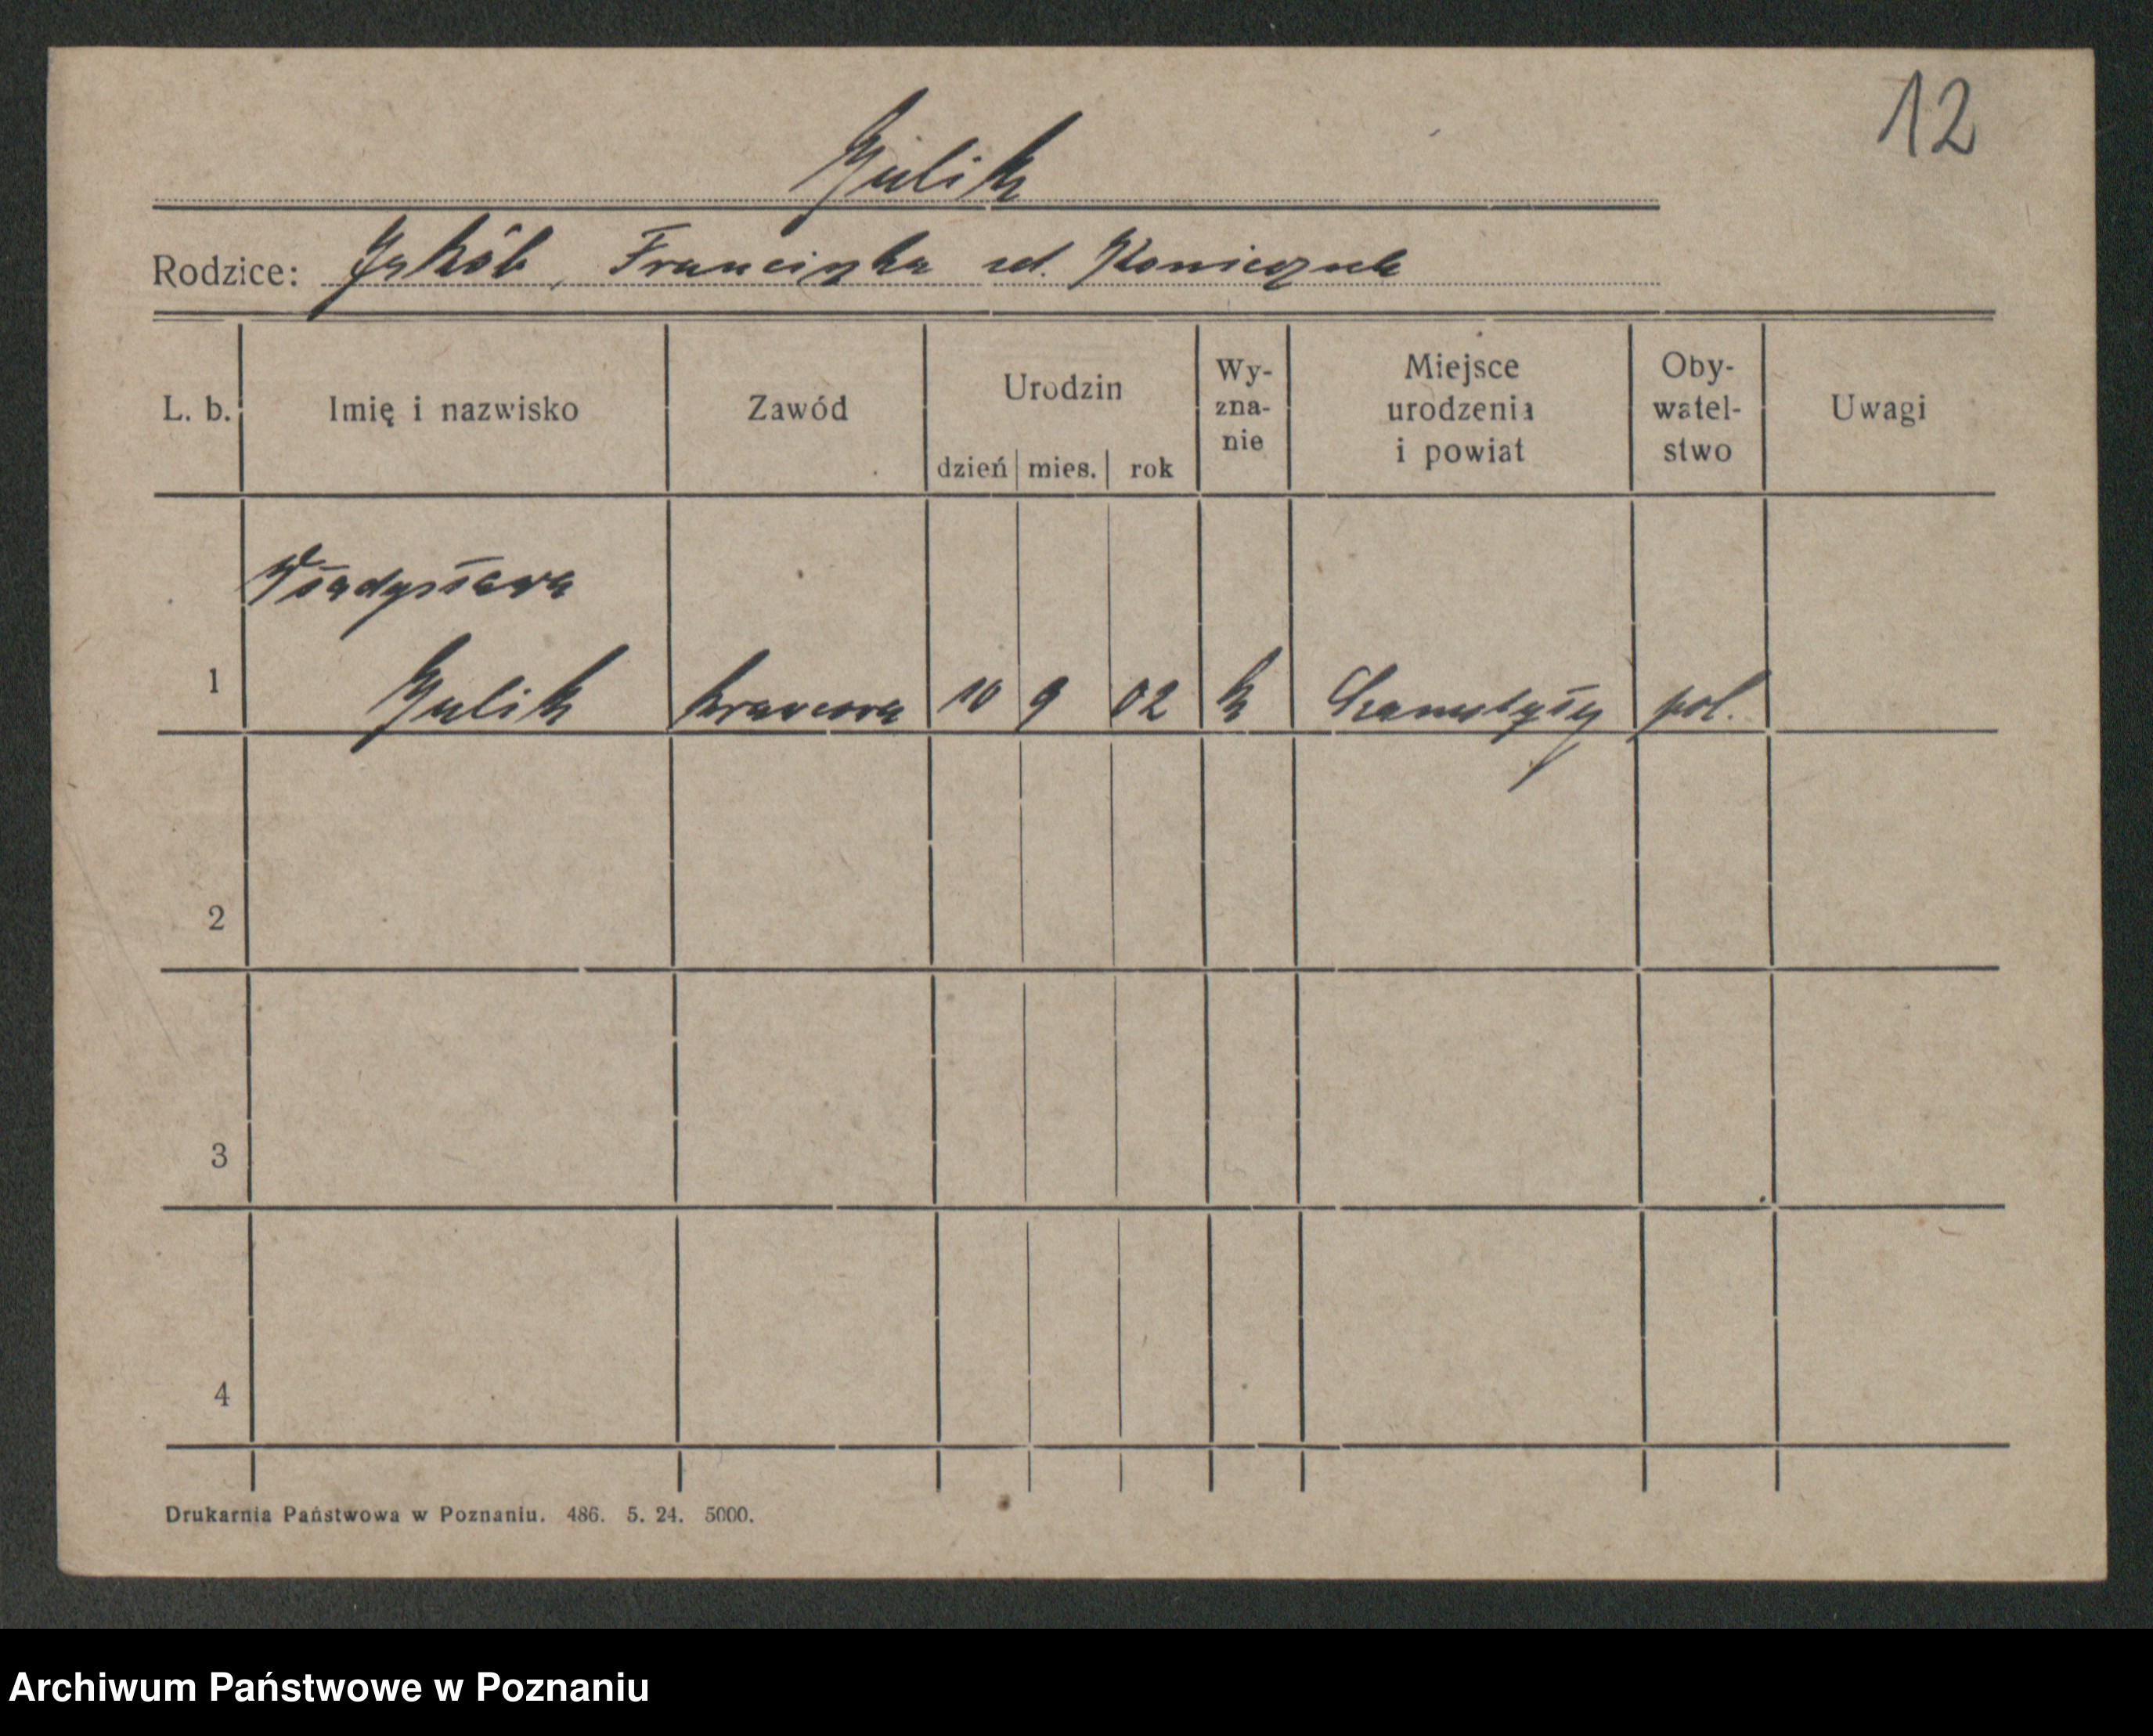 12
Gulik
Rodzice: Jakób, Franciszka zd. Konieczn
L. b. Imię i nazwisko Zawód Urodzin dzień mies. rok Wy-zna-nie Miejsce urodzenia i powiat Oby-watel-stwo Uwagi
Władysława
1 Gulik krawcowa 10 9 02 k Szamotuły pol.
2
3
4
Drukarnia Państwowa w Poznaniu. 486. 5. 24. 5000.
Archiwum Państwowe w Poznaniu